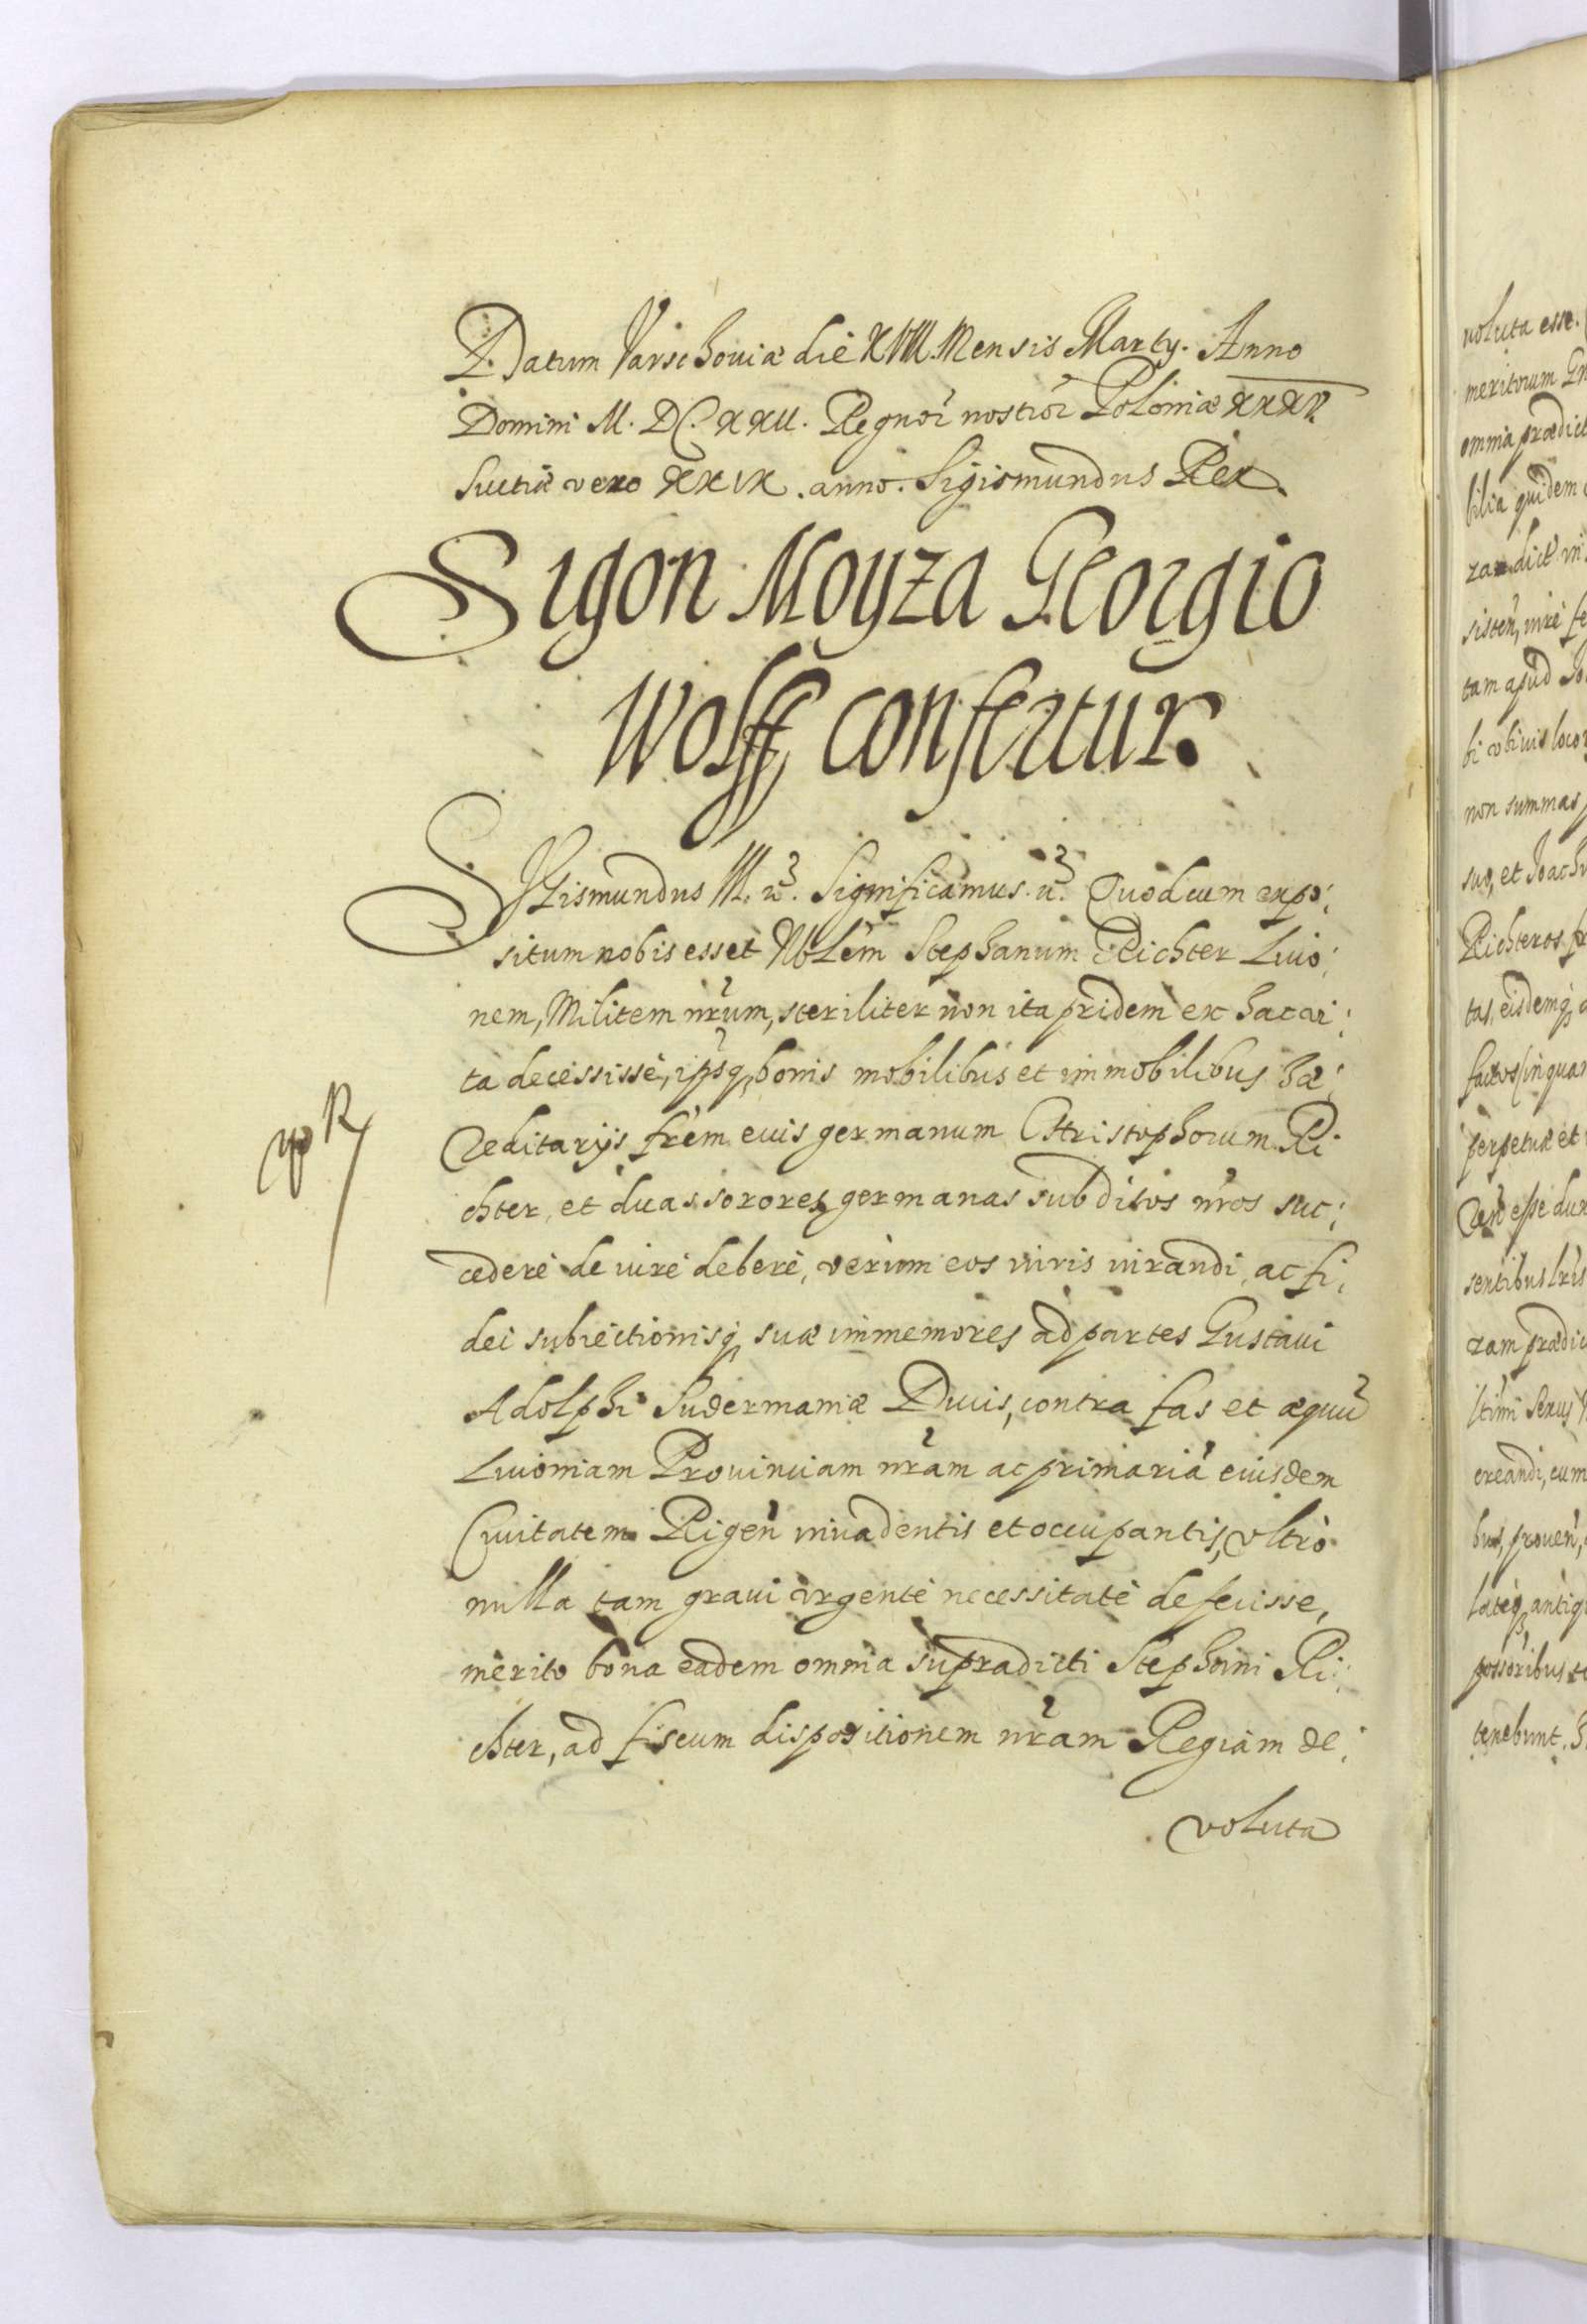 Datum Varschouiæ die XVIII Mensis Marty. Anno
Domini M. DC. XXII. Regnor̃ nostror̃ Poloniæ XXXV
Suetiæ vero XXIX. anno. Sigismundus Rex.
Sigon Moyza Georgio
Wolff confertur.
SIgismundus III. &. Significamus. &. Quod cum expo:
situm nobis esset Nblem Stephanum Richter Liuo:
nem, Militem nrum, steriliter non ita pridem ex hac vi:
ta decessisse, ipsq, bonis mobilibus et immobilibus hæ:
reditarijs frem eius germanum Christophorum Ri
chter, et duas sorores germanas subditos nros suc:
cedere de iure debere, verum eos iuris iurandi, ac fi:
dei subiectionisq, suæ immemores ad partes Gustaui
Adolphi Sudermaniæ Ducis, contra fas et æquũ
Liuoniam Prouinciam nram ac primariã eiusdem
Ciuitatem Rigeñ inuadentis et occupantis, vltrò
nulla tam graui vrgente necessitate defecisse,
merito bona eadem omnia supradicti Stephani Ri:
chter, ad fiscum dispositionem nram Regiam de:
voluta
voluta esse.
meritorum
omnia prædict
bilia quidem
sisteñ, iure fe
tam apud
non summas
suo, et Joach
Richteros fr
tas, eisdemq,
factos (inquan
perpetuæ et
esse dux
sentibus lris
zam prædic
creandi, cum
bus, proueñ,
lateq, antiq
possoribus
tenebunt.